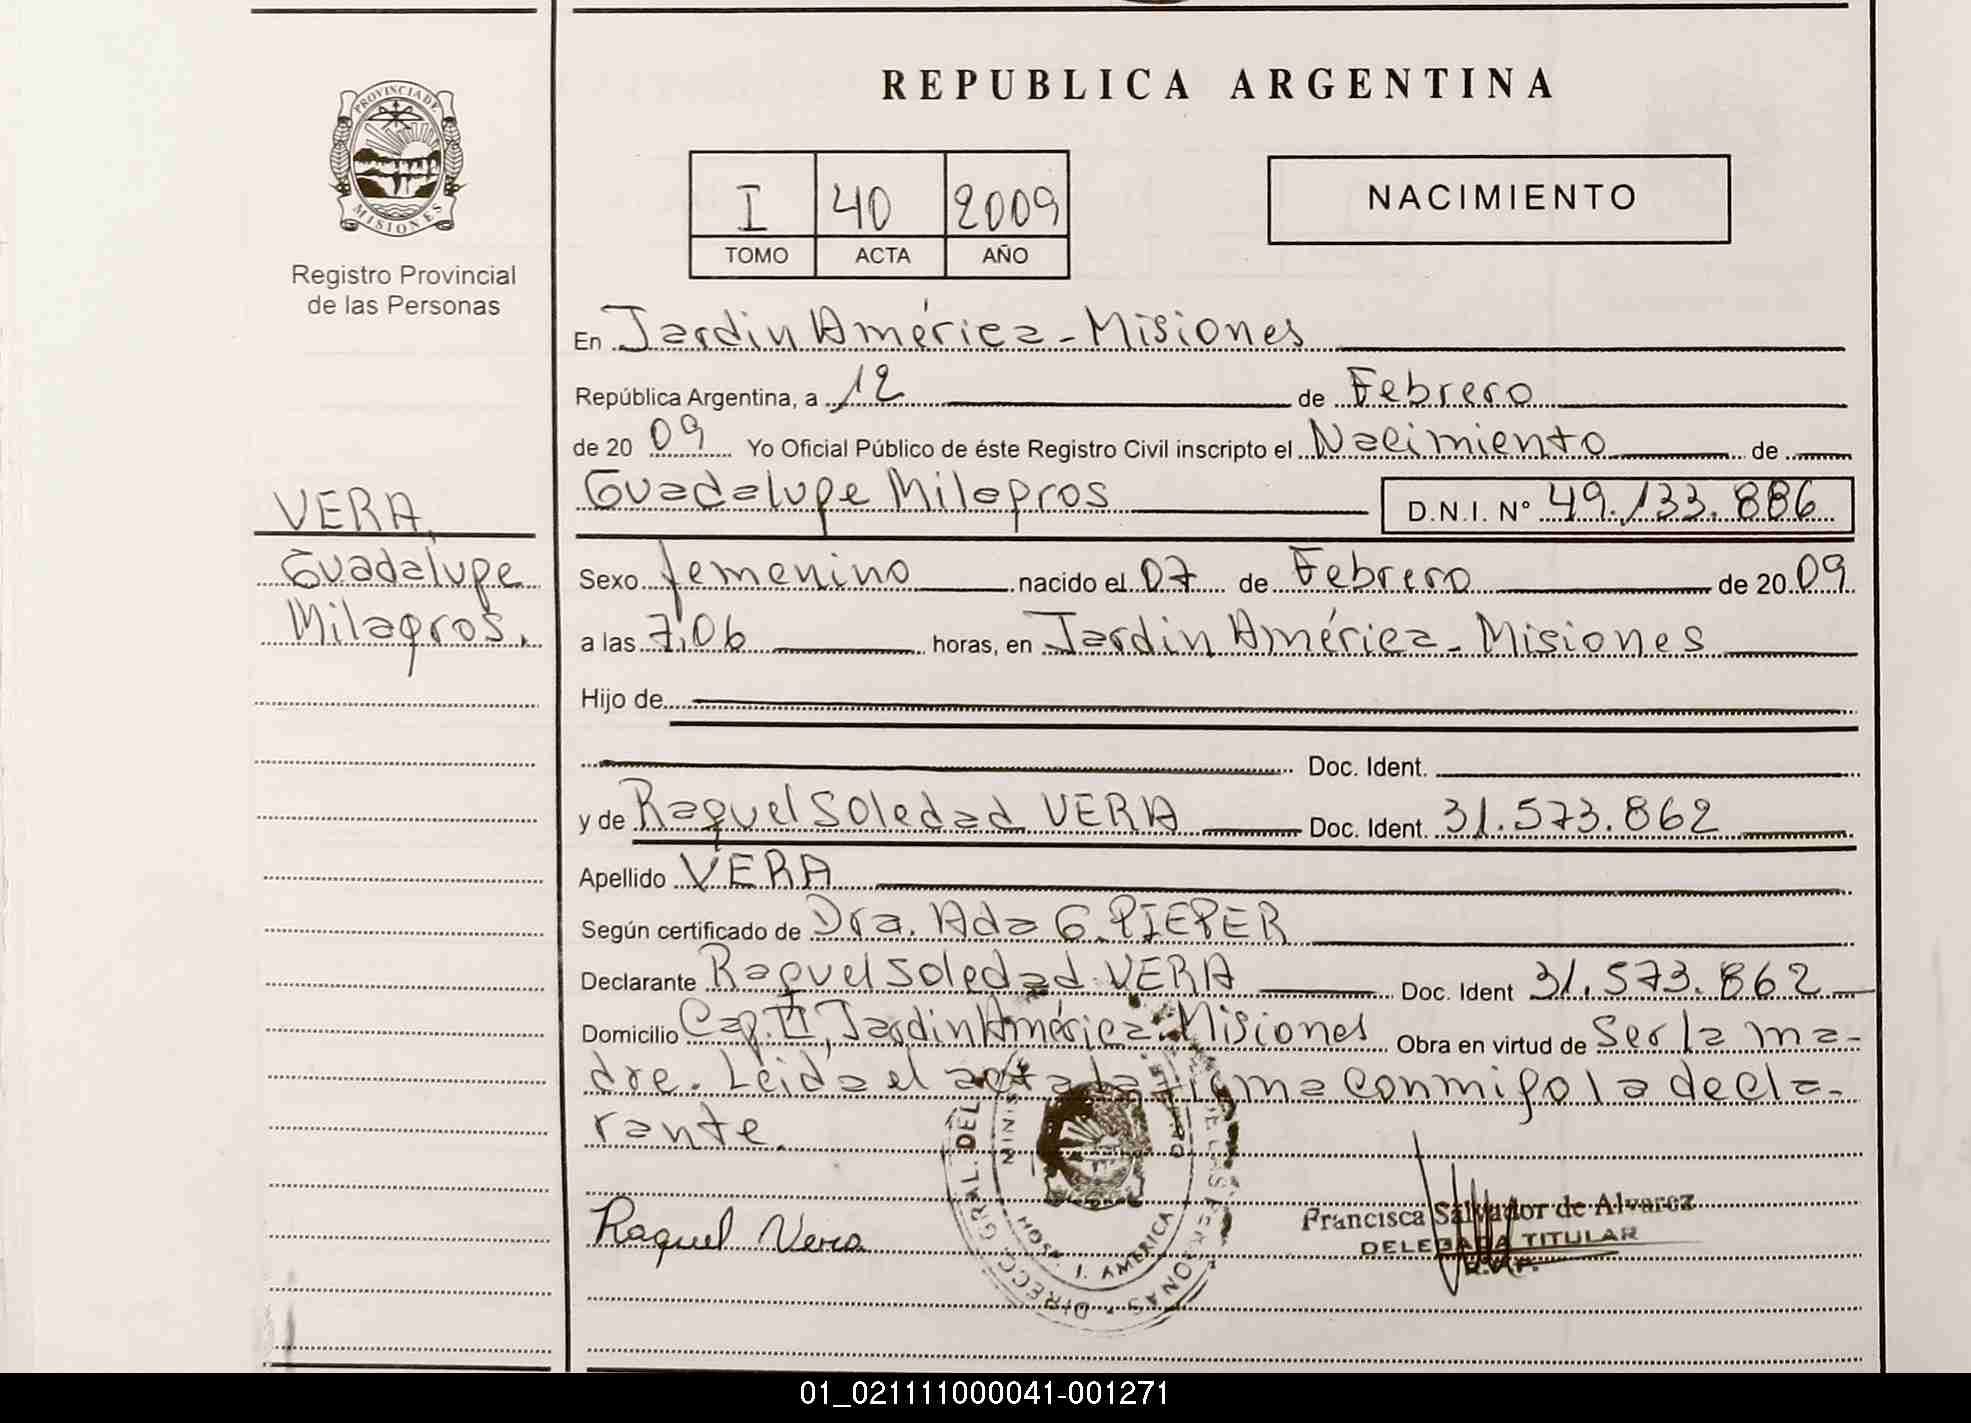 REPUBLICA ARGENTINA
PROVINCIA DE
MISIONES
Registro Provincial
de las Personas
I 40 2009
TOMO ACTA AÑO
NACIMIENTO
En Jardin América - Misiones
República Argentina, a 12 de Febrero
de 2009 Yo Oficial Público de éste Registro Civil inscripto el Nacimiento de
Guadalupe Milagros D.N.I. N° 49.133.886
VERA,
Guadalupe
Milagros.
Sexo femenino nacido el 07 de Febrero de 2009
a las 7,06 horas, en Jardin América - Misiones
Hijo de
Doc. Ident.
y de Raquel Soledad VERA Doc. Ident. 31.573.862
Apellido VERA
Según certificado de Dra. Ada G. PIEPER
Declarante Raquel Soledad VERA Doc. Ident 31.573.862
Domicilio Cap. VI, Jardin América - Misiones Obra en virtud de Ser la ma-
dre. Leida el acta la firma conmigo la decla-
rante.
Raquel Vera
DIRECC. GRAL. DEL DE LAS PERSONAS
HOSP. J. AMERICA
Francisca Salvador de Alvarez
DELEGADA TITULAR
01_021111000041-001271